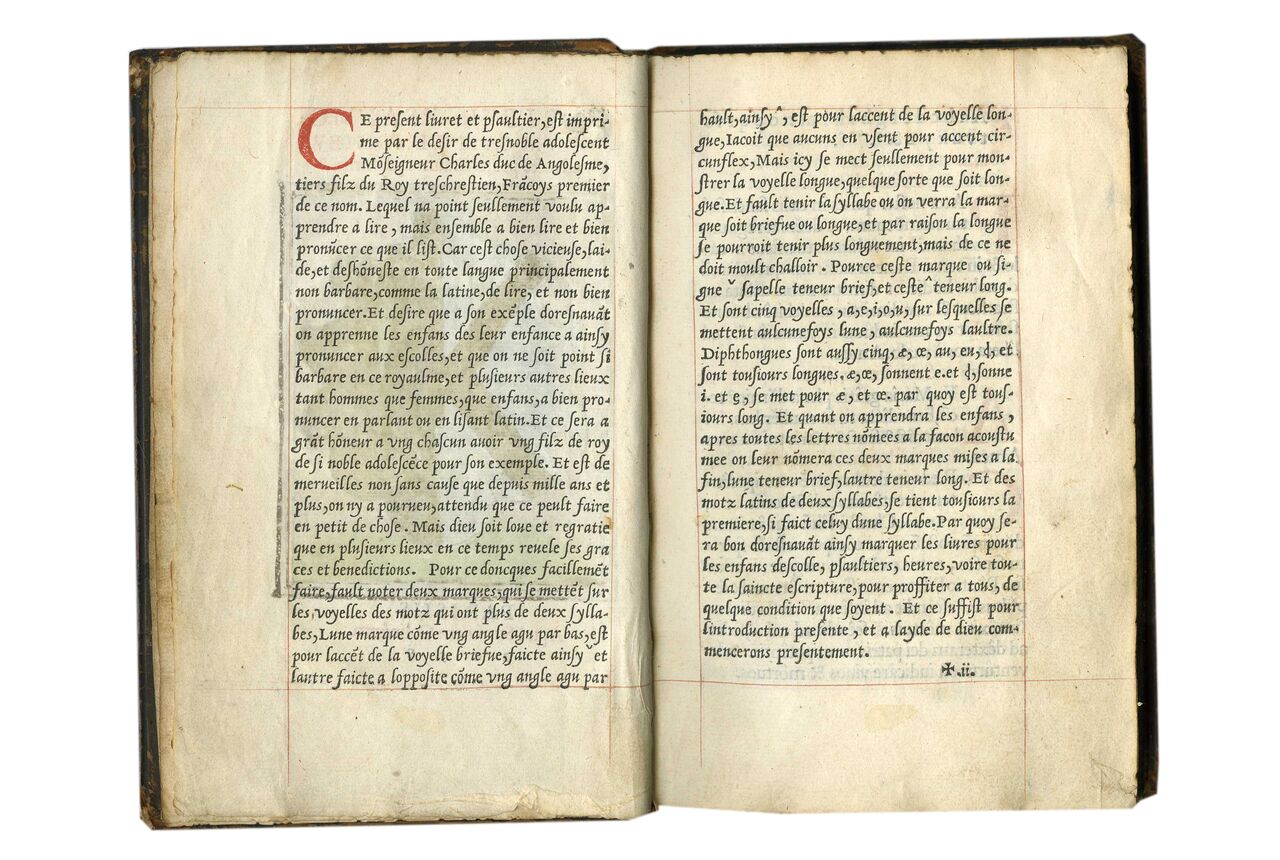 CE preſent liuret et pſaultier,eſt impri-
me par le deſir de treſnoble adoleſcent
Mõſeigneur Charles duc de Angoleſme,
tiers filz du Roy treſchreſtien,Frãcoys premier
de ce nom. Lequel na point ſeullement voulu ap-
prendre a lire, mais enſemble a bien lire et bien
pronũcer ce que il liſt. Car ceſt choſe vicieuſe,lai-
de,et deſhõneſte en toute langue principalement
non barbare,comme la latine,de lire, et non bien
pronuncer. Et deſire que a ſon exẽple doreſnauãt
on apprenne les enfans des leur enfance a ainſy
pronuncer aux eſcolles,et que on ne ſoit point ſi
barbare en ce royaulme,et pluſieurs autres lieux
tant hommes que femmes,que enfans,a bien pro-
nuncer en parlant ou en liſant latin. Et ce ſera a
grãt hõneur a vng chaſcun auoir vng filz de roy
de ſi noble adoleſcẽce pour ſon exemple. Et eſt de
merueilles non ſans cauſe que depuis mille ans et
plus,on ny a pourueu,attendu que ce peult faire
en petit de choſe. Mais dieu ſoit loue et regratie
que en pluſieurs lieux en ce temps reuele ſes gra
ces et benedictions. Pour ce doncques facillemẽt
faire,fault noter deux marques,qui ſe mettẽt ſur
les voyelles des motz qui ont plus de deux ſylla-
bes,Lune marque cõme vng angle agu par bas,eſt
pour laccẽt de la voyelle briefue,faicte ainſy ˇ et
lautre faicte a loppoſite cõme vng angle agu par
hault,ainſy ^, eſt pour laccent de la voyelle lon-
gue,Iacoit que aucuns en vſent pour accent cir-
cunflex, Mais icy ſe mect ſeullement pour mon-
ſtrer la voyelle longue,quelque ſorte que ſoit lon-
gue. Et fault tenir la ſyllabe ou on verra la mar-
que ſoit briefue ou longue,et par raiſon la longue
ſe pourroit tenir plus longuement,mais de ce ne
doit moult challoir. Pource ceſte marque ou ſi-
gne ˇ ſapelle teneur brief,et ceſte ^ teneur long.
Et ſont cinq voyelles, a,e,i,o,u, ſur leſquelles ſe
mettent aulcuneſoys lune, aulcuneſoys laultre.
Diphthongues ſont auſſy cinq, æ, œ, au, eu, ẏ, et
ſont touſiours longues. æ,œ, ſonnent e. et ẏ,ſonne
i. et ę, ſe met pour æ, et œ. par quoy eſt touſ-
iours long. Et quant on apprendra les enfans,
apres toutes les lettres nõmees a la facon acouſtu
mee on leur nõmera ces deux marques miſes a la
fin,lune teneur brief,lautre teneur long. Et des
motz latins de deux ſyllabes,ſe tient touſiours la
premiere,ſi faict celuy dune ſyllabe. Par quoy ſe-
ra bon doreſnauãt ainſy marquer les liures pour
les enfans deſcolle, pſaultiers, heures, voire tou-
te la ſaincte eſcripture,pour proffiter a tous, de
quelque condition que ſoyent. Et ce ſuffiſt pour
lintroduction preſente, et a layde de dieu com-
mencerons preſentement.
✠.ii.